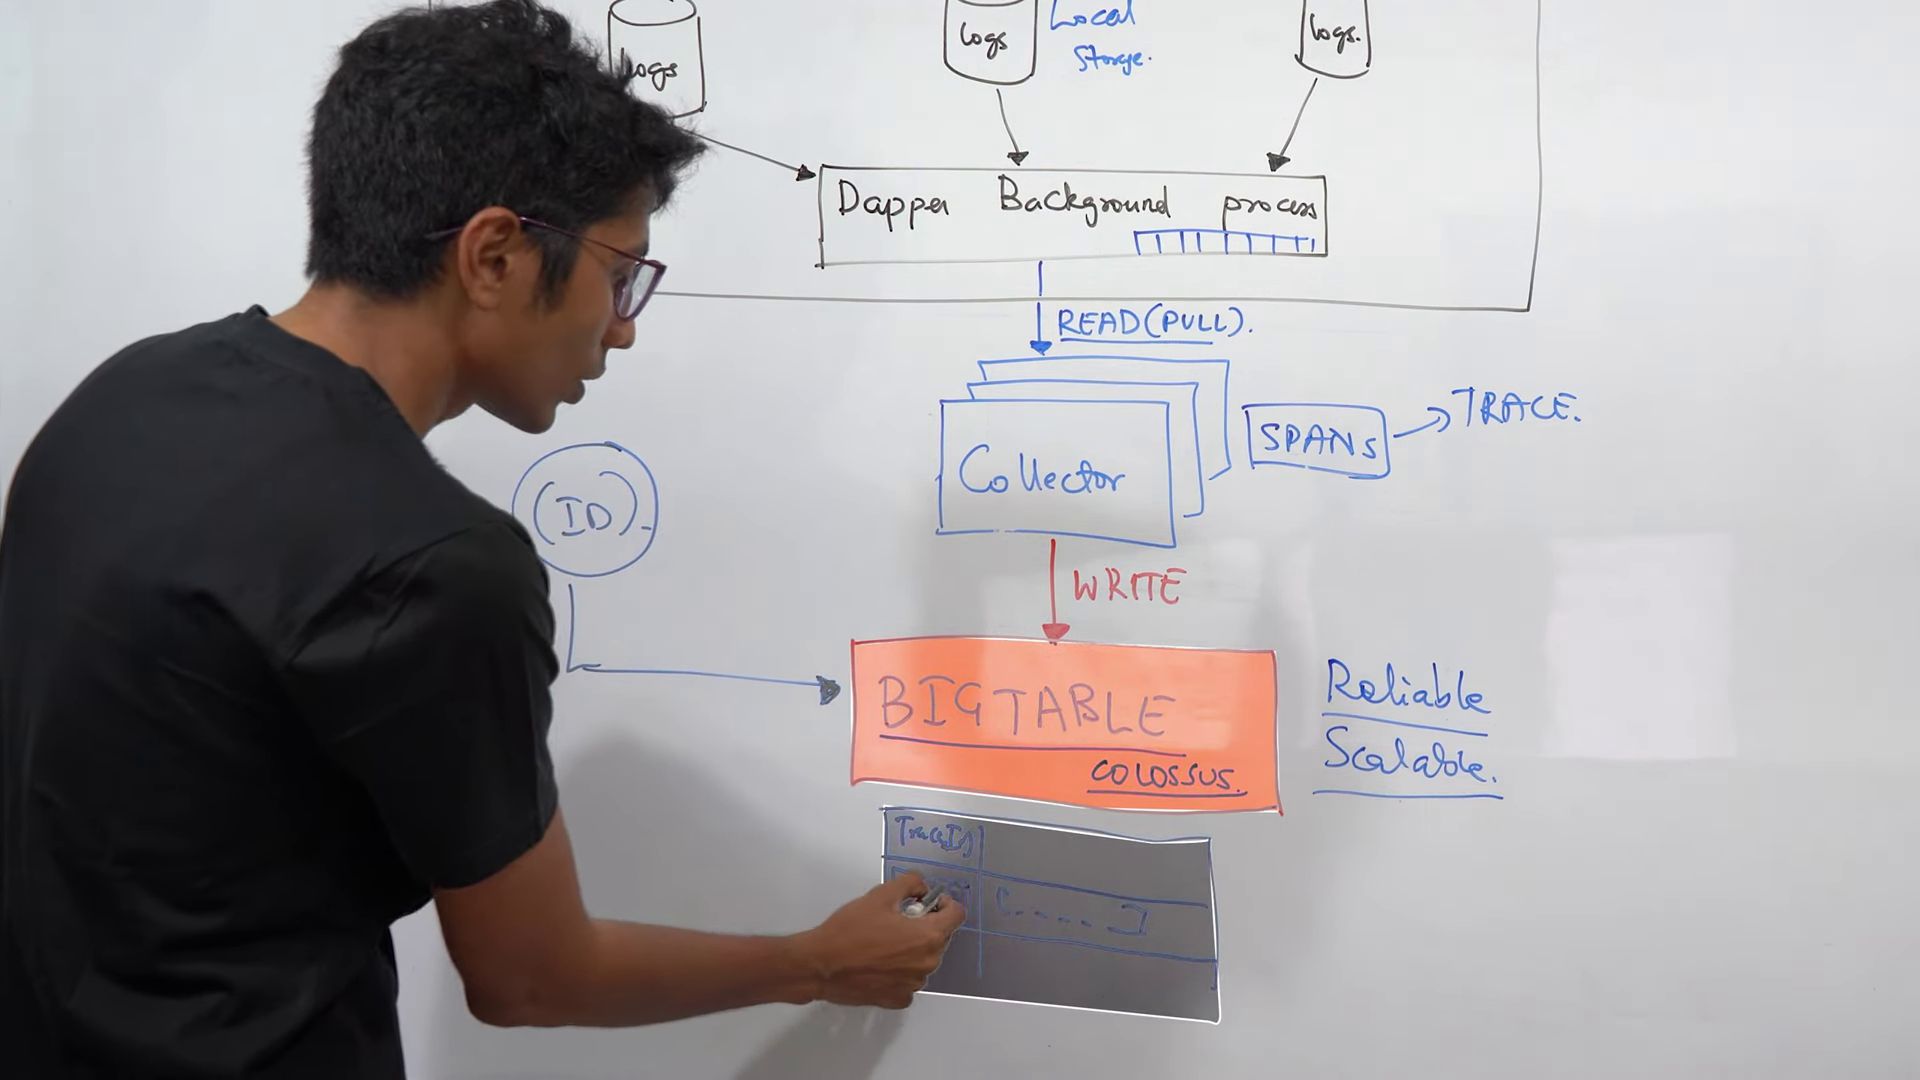 logs
logs
Local
Storage.
logs.
Dapper Background process
READ(PULL).
Collector
SPANS
TRACE.
(ID)
WRITE
BIGTABLE
COLOSSUS.
Reliable
Scalable.
TraceID
[----]